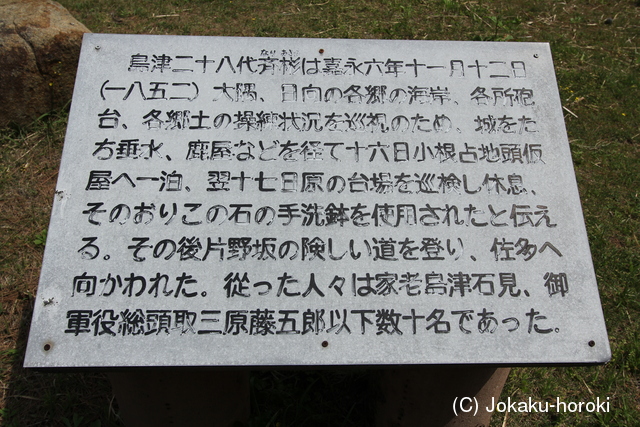 なりあきら
島津二十八代斉彬は嘉永六年十一月十二日
(一八五二)大隅、日向の各郷の海岸、各所砲
台、各郷土の操練状況を巡視のため、城をた
ち垂水、鹿屋などを経て十六日小根占地頭仮
屋へ一泊、翌十七日原の台場を巡検し休息、
そのおりこの石の手洗鉢を使用されたと伝え
る。その後片野坂の険しい道を登り、佐多へ
向かわれた。従った人々は家老島津石見、御
軍役総頭取三原藤五郎以下数十名であった。
(C) Jokaku-horoki